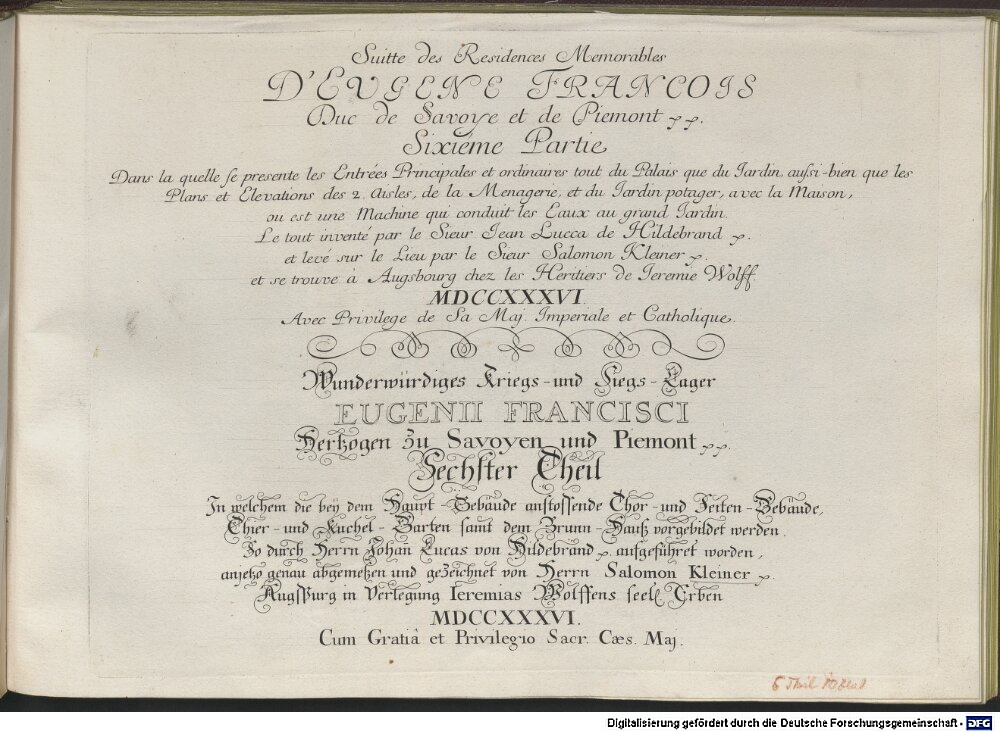 Suitte des Residences Memorables
D'EUGENE FRANCOIS
Duc de Savoye et de Piemont
Sixiéme Partie
Dans la quelle se presente les Entrées Principales et ordinaires tout du Palais que du Jardin, aussi-bien que les
Plans et Elevations des 2. Aisles, de la Menagerie, et du Jardin potager, avec la Maison,
ou est une Machine qui conduit les Eaux au grand Jardin.
Le tout inventé par le Sieur Jean Lucca de Hildebrand
et levé sur le Lieu par le Sieur Salomon Kleiner
et se trouve à Augsbourg chez les Heritiers de Jeremie Wolff
MDCCXXXVI.
Avec Privilege de Sa Maj. Imperiale et Catholique.
Wunderwürdiges Kriegs- und Siegs-Lager
EUGENII FRANCISCI
Hertzogen zu Savoyen und Piemont
Sechster Theil
In welchem die bey dem Haupt-Gebäude anstossende Thor- und Seiten-Gebäude,
Thier- und Kuchel-Garten samt dem Brunn-Hauß vorgebildet werden.
So durch Herrn Johan Lucas von Hildebrand aufgeführet worden,
anjetzo genau abgemeßen und gezeichnet von Herrn Salomon Kleiner
Augspurg in Verlegung Ieremias Wolffens seel. Erben
MDCCXXXVI.
Cum Gratiâ et Privilegio Sacr. Cæs. Maj.
6 Theil
Digitalisierung gefördert durch die Deutsche Forschungsgemeinschaft - DFG